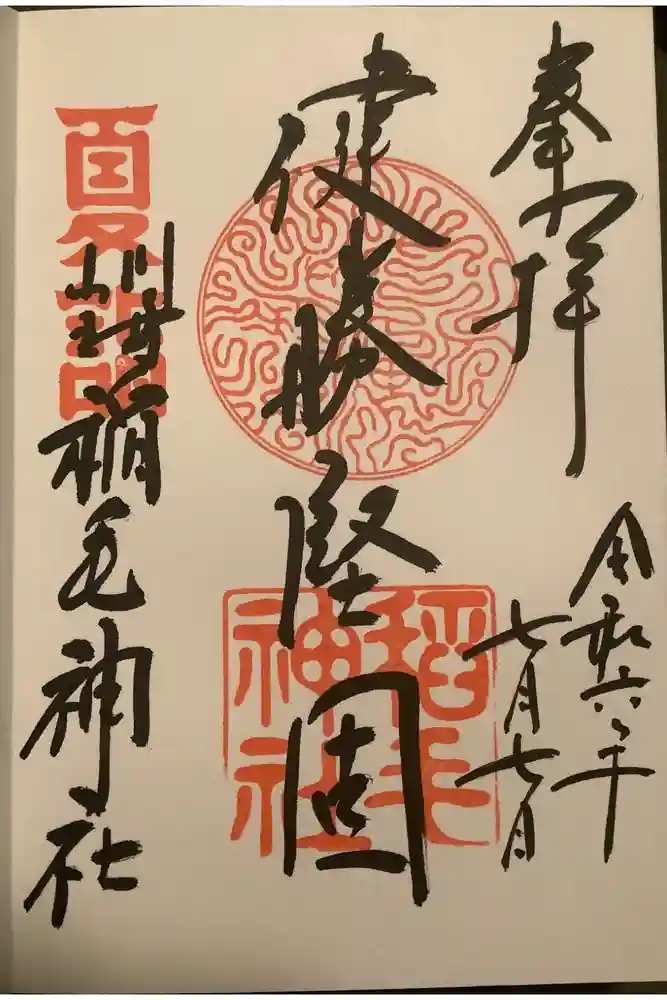 奉拝
令和六年
七月七日
健勝堅固
稲毛
神社
夏詣
川崎
山王
稲毛神社